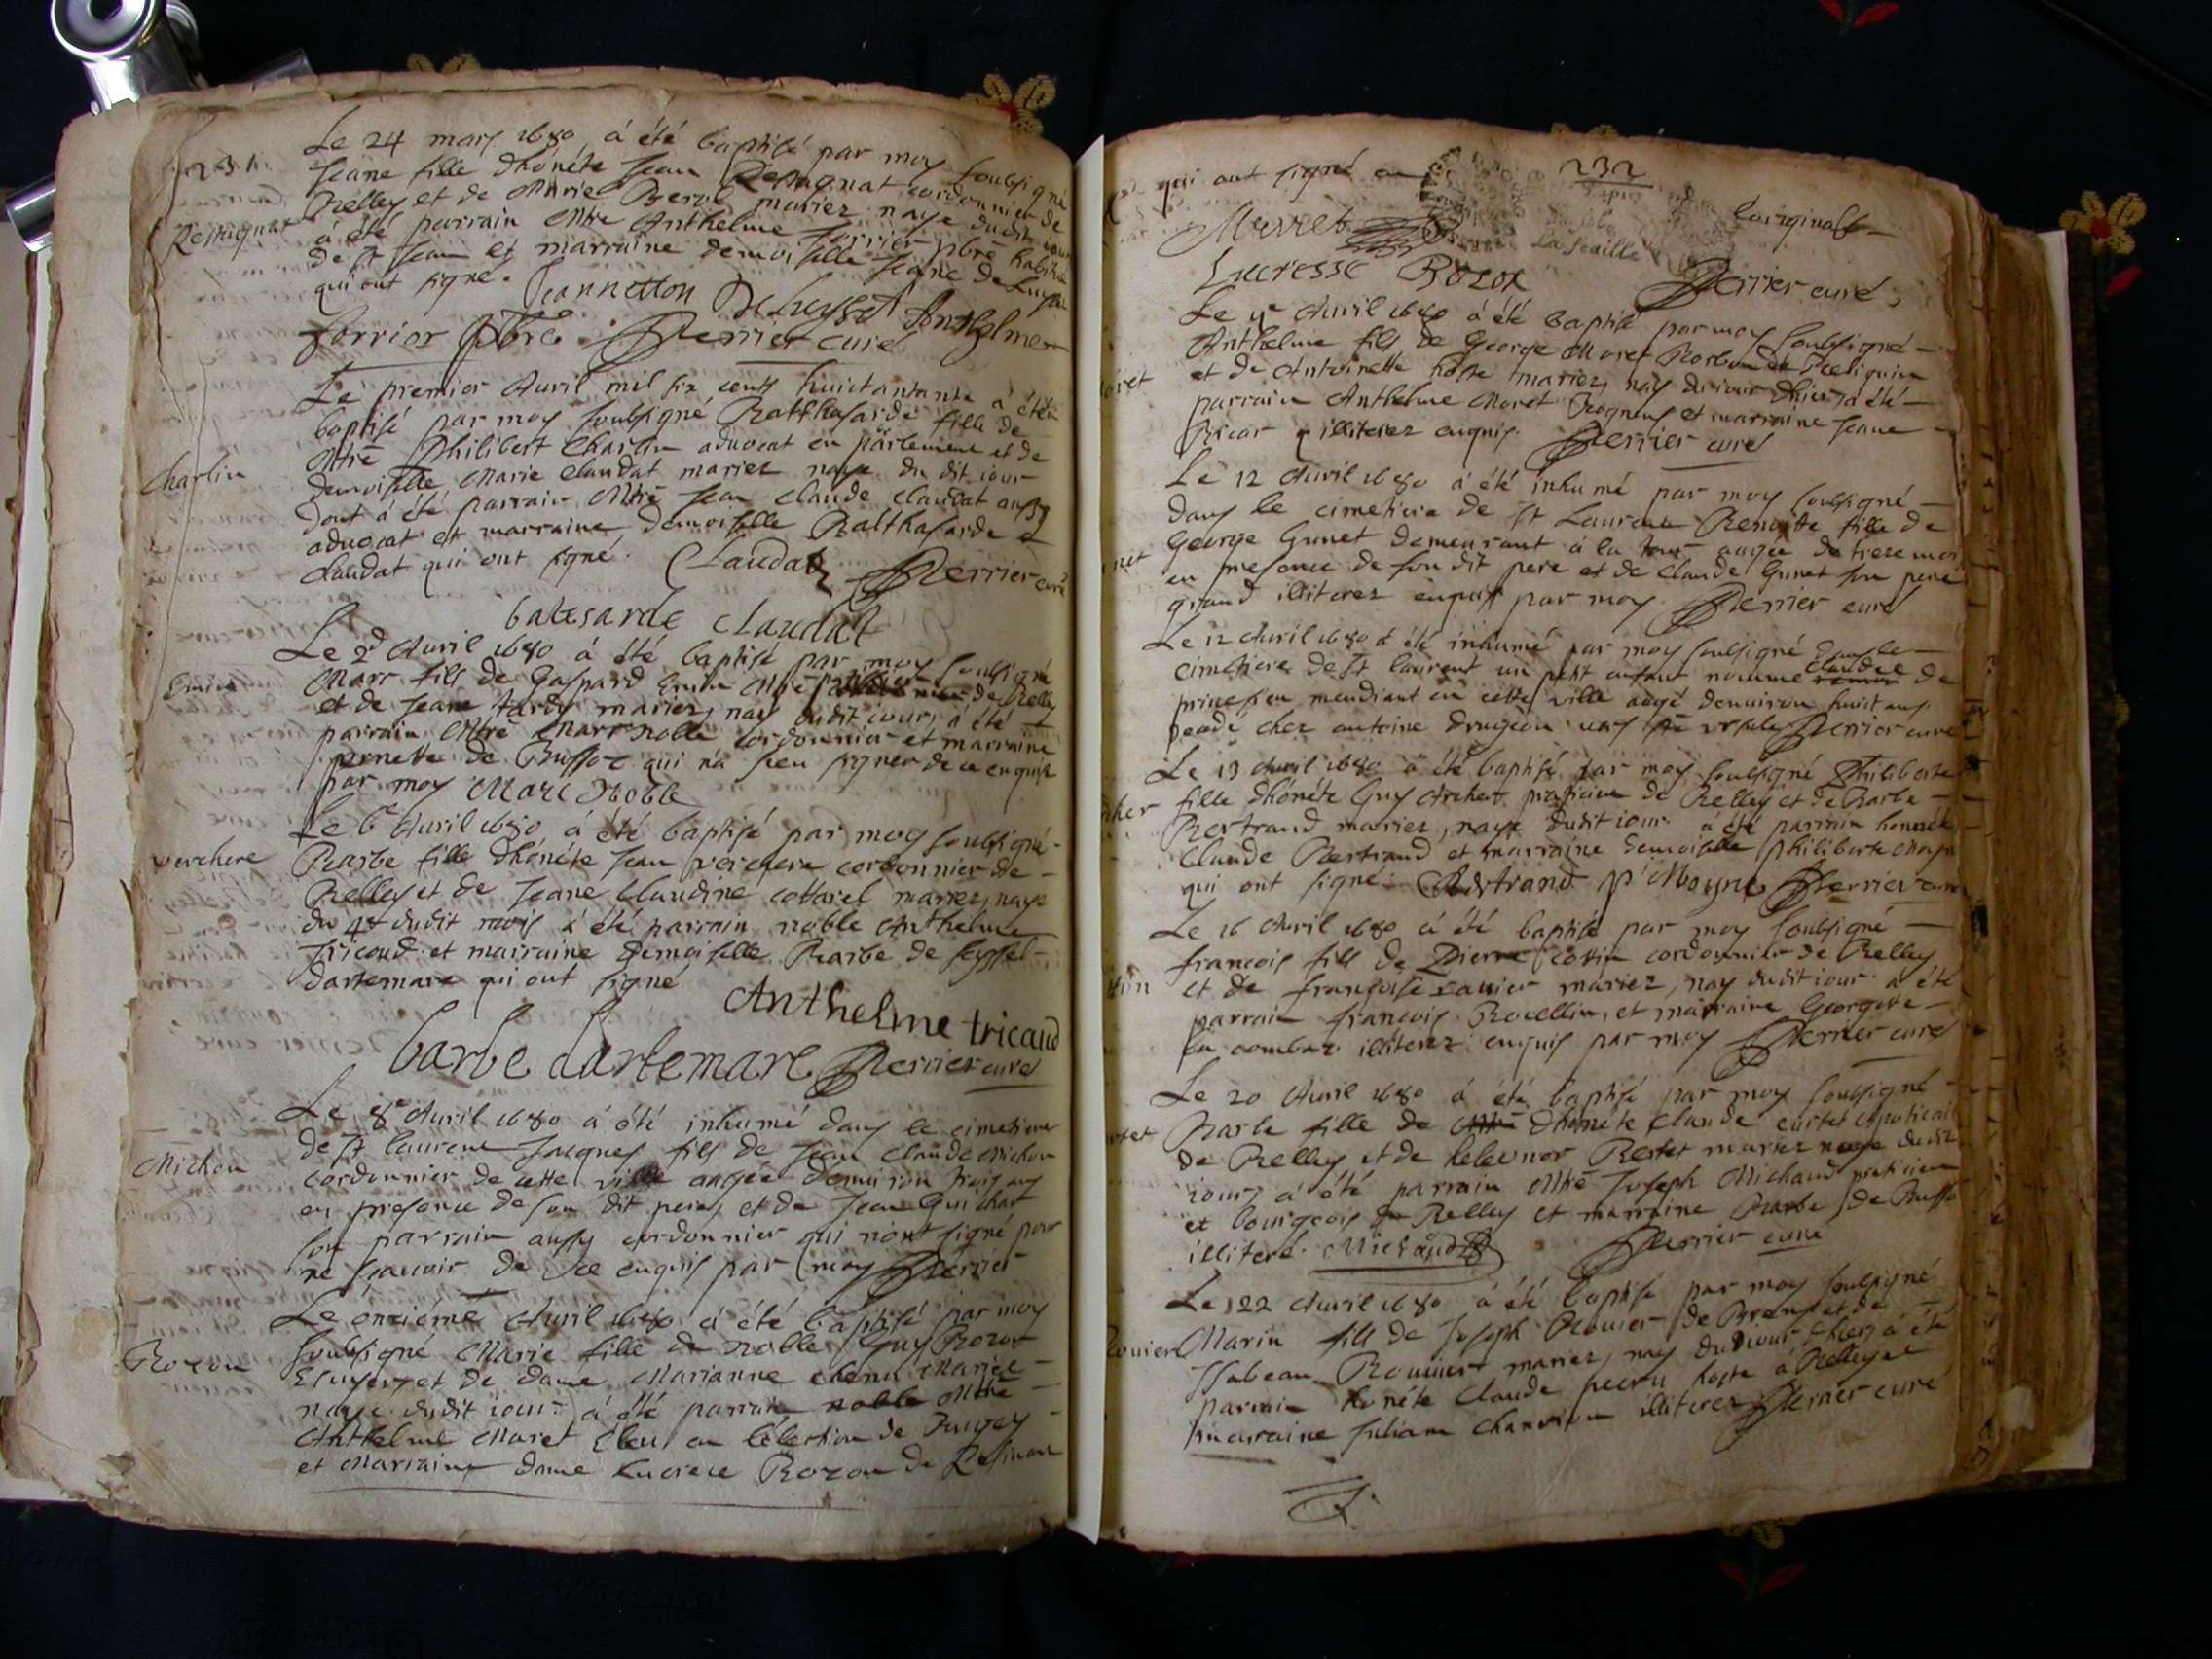 231
Le 24 mars 1680 à été baptisé par moy soubsigné
Jeane fille dhônéte Jean Restagnat cordonnier de
Belley et de Marie mariez naye dudit jour
Restagnat
à été parrain Mtre Anthelme forrier pbre habitué
de St Jean et marraine demoiselle Jeane de
qui ont signe. Jeannetton Anthelme
forrier pbre Perrier curé
Le premier Avril mil six cents huictantante à été
baptisé par moy soubsigné Balthasarde fille de
Mtre Philibert Charlin advocat en parlement et de
Charlin
demoiselle Marie Claudat mariez naye du dit iour
dont à été parrain Mtre Jean Claude Claudat aussy
advocat et marraine demoiselle Balthasarde
Claudat qui ont signé. Claudat Perrier curé
balesarde Claudat
Le 2d Avril 1680 à été baptisé par moy soubsigné
Marc fils de Gaspard de Belley
et de Jeane tardy mariez, nay dudit iour, à été
parrain Mtre Marc noble cordonnier et marraine
pernette de Buffoz qui n'a sceu signer de ce enquise
par moy Marc Noble
Le 6e Avril 1680 à été baptisé par moy soubsigné
verchere
Barbe fille dhônéte Jean verchere cordonnier de
Belley et de Jeane Claudine cottarel mariez, naye
du 4e dudit mois à été parrain noble Anthelme
Tricaud et marraine Demoiselle Barbe de seyssel
dartemare qui ont signé
Anthelme tricaud
barbe dartemare Perrier curé
Le 8e Avril 1680 à été inhumé dans le cimetiere
de St laurent Jacques fils de Jean Claude Michon
Michon
cordonnier de cette ville aagée denviron trois ans
en presence de son dit pere, et de Jean Guichar
son parrain aussy cordonnier qui n'ont signé pour
ne scavoir de ce enquis par moy Perrier
Le onziéme Avril 1680 à été baptisé par moy
soubsigné Marie fille de noble Guy Bozon
Bozon
Escuyer, et de dame Marianne mariez
naye dudit iour à été parrain noble Mtre
Anthelme Maret Eleu en l'élection de Bugey
et Marraine dame Lucrece Bozon de
232
qui ont signé en loriginal
la feuille
Lucresse Bozon Perrier curé
Avril 1680 à été baptisé par moy soubsigné
Anthelme fils de George Moret
et de Antoinette hoste mariez, nay du iour dhier, à été
parrain Anthelme Moret et marraine Jeane
illiterez enquis. Perrier curé
Le 12 Avril 1680 à été inhumé par moy soubsigné
dans le cimetiere de St Laurent Benoitte fille de
George Gunet demeurant à la tour aagée de treze mois
en presence de son dit pere et de Claude Gunet son pere
grand illiterez enquis par moy. Perrier curé
Le 12 Avril 1680 à été inhumé par moy soubsigné dans le
cimetiere de St laurent un petit enfant nommé claude de
mendiant en cette ville aagé denviron huict ans
chez antoine drugeon vers Ste ursule Perrier curé
Le 13 Avril 1680 à été baptisé par moy soubsigné Philiberte
fille dhônéte Guy Archer praticien de Belley et de Barbe
Bertrand mariez, naye dudit iour à été parrain honnéte
Claude Bertrand et marraine demoiselle philiberte Moyne
qui ont signé Bertrand p Moyne Perrier curé
Le 16 Avril 1680 à été baptisé par moy soubsigné
francois fils de Pierre Cottin cordonnier de Belley
et de francoise mariez, nay dudit iour à été
parrain francois Borellin, et marraine Georgette
la combaz illiterez enquis par moy Perrier curé
Le 20 Avril 1680 à été baptisé par moy soubsigné
Barbe fille de dhônéte Claude curtet
de Belley et de heleonor Bertet mariez naye dudit
iour, à été parrain Mtre Joseph Michaud praticien
et bourgeois de Belley et marraine Barbe de Buffo
illiteré. Michaud Perrier curé
Le 22 Avril 1680 à été baptisé par moy soubsigné
Rouier
Marin fils de Joseph Rouier de Brens et de
Isabeau mariez, nay du iour dhier, à été
parrain honéte Claude hoste à Belley et
marraine illiterez Perrier curé